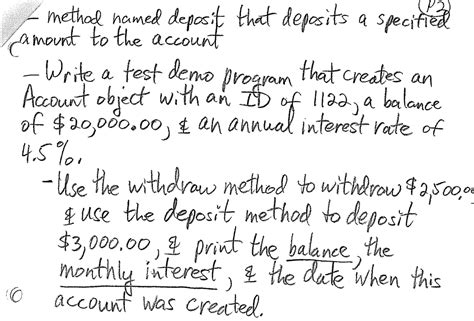 (P2)
- method named deposit that deposits a specified
amount to the account
- Write a test demo program that creates an
Account object with an ID of 1122, a balance
of $20,000.00, & an annual interest rate of
4.5%.
- Use the withdraw method to withdraw $2,500.00
& use the deposit method to deposit
$3,000.00, & print the balance, the
monthly interest, & the date when this
account was created.